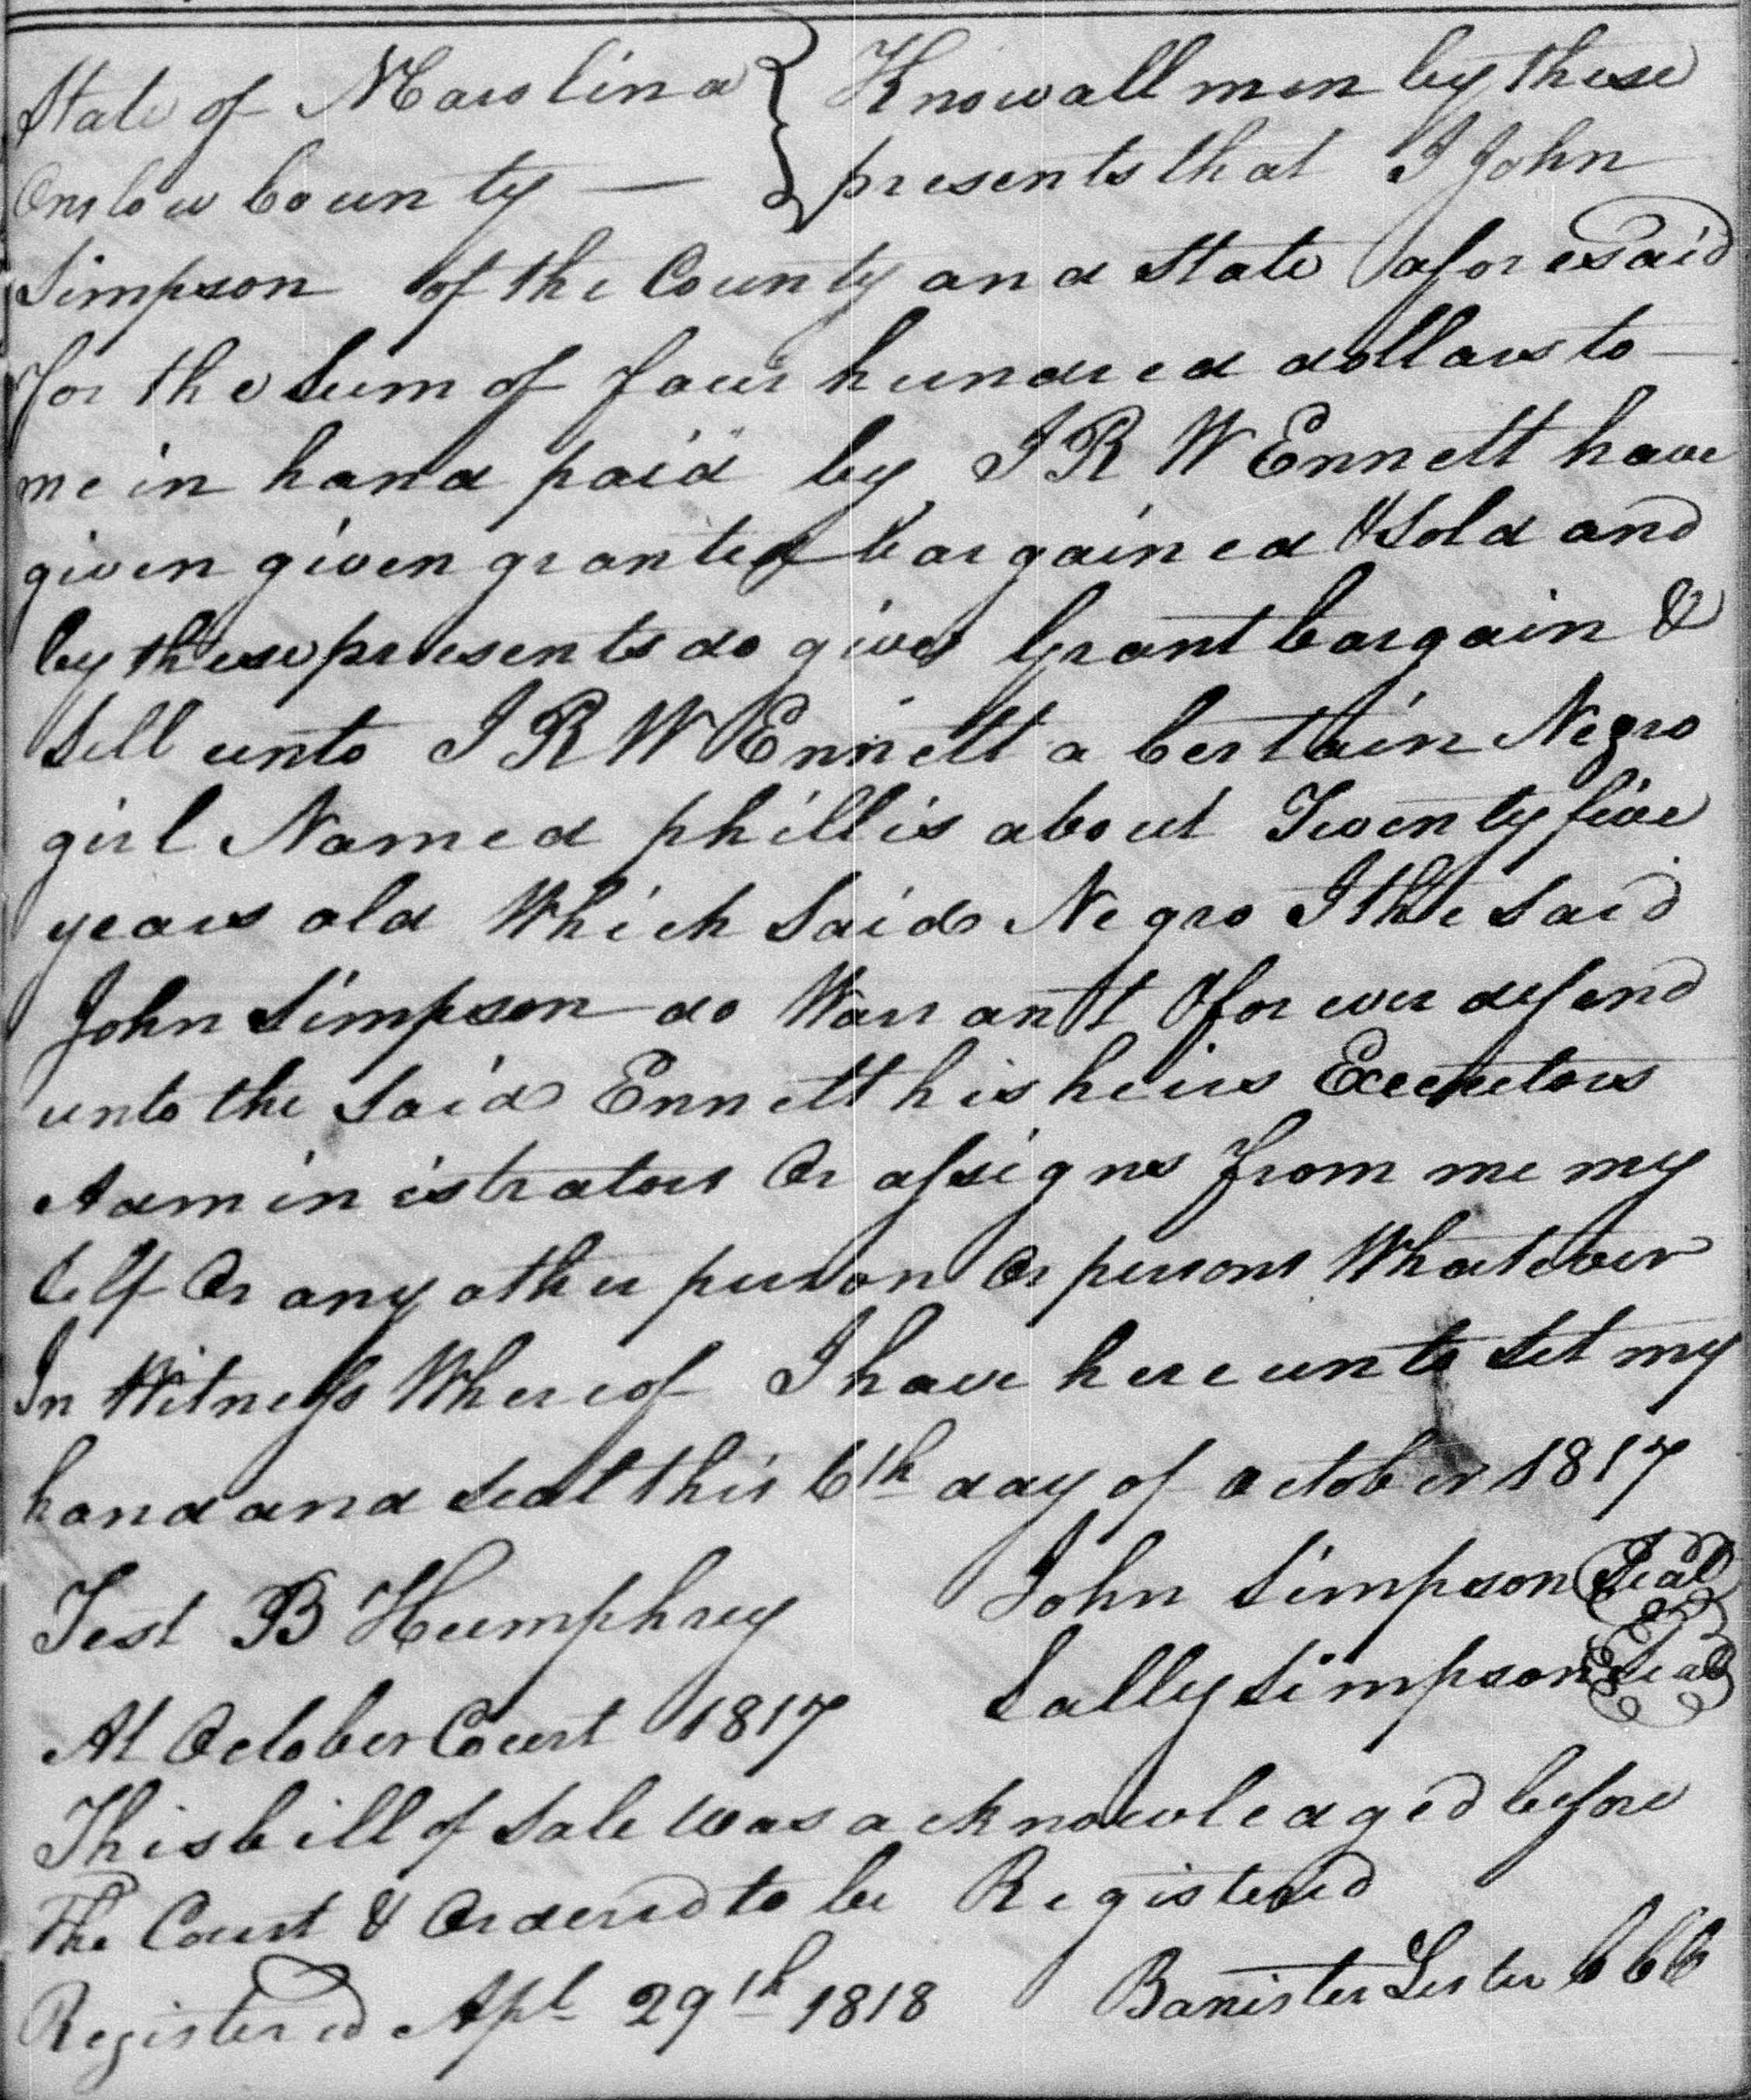 State of NCarolina } Know all men by these
Onslow County — } presents that I John
Simpson of the County and State aforesaid
for the Sum of four hundred dollars to
me in hand paid by J R W Ennett have
given given granted bargained & Sold and
by these presents do give Grant bargain &
Sell unto J R W Ennett a Certain Negro
girl Named phillis about Twenty five
years old Which Said Negro I the Said
John Simpson do Warrant & for ever defend
unto the Said Ennett his heirs Executors
Administrators Or assigns from me my
Self Or any other person Or persons Whatever
In Witness Whereof I have here unto Set my
hand and Seal this 6th day of october 1817
Test B Humphrey John Simpson Seal
Sally Simpson Seal
At October Court 1817
This bill of Sale was acknowledged before
The Court & Ordered to be Registered
Registered Apl 29th 1818 Banister Lester CCC